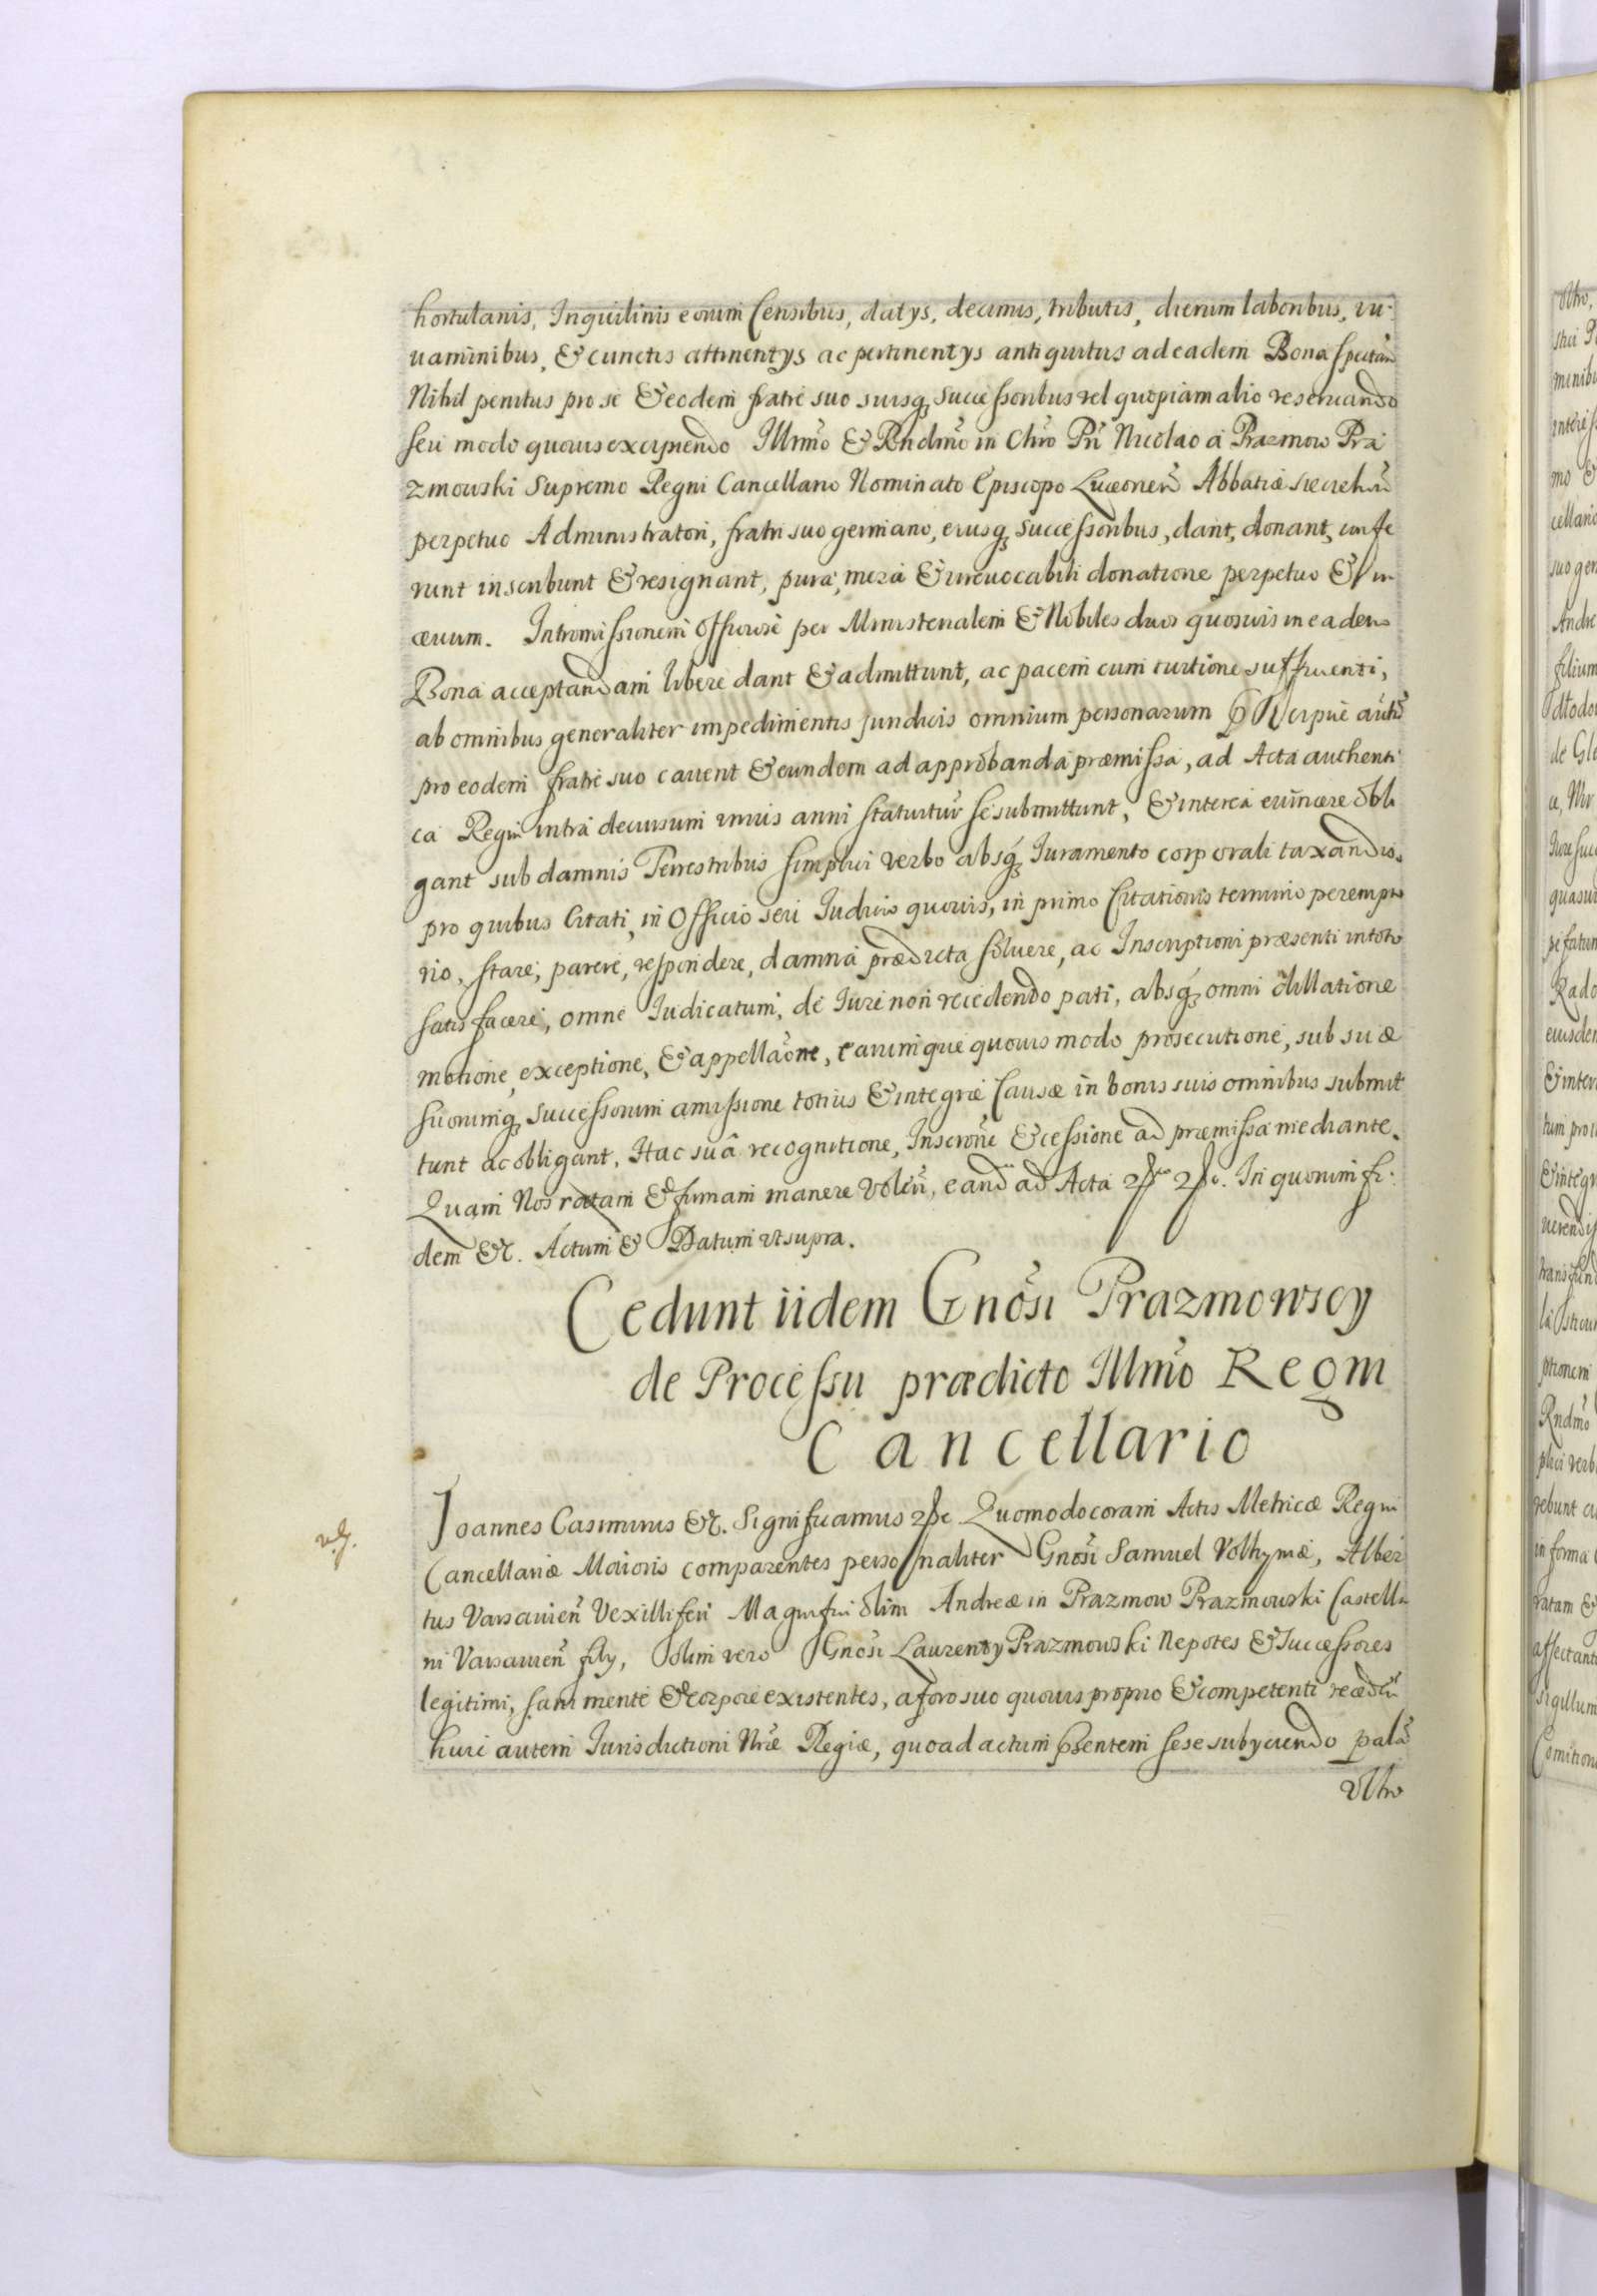 hortulanis, Inquilinis eorum Censibus, datys, decimis, tributis, dierum laboribus, iu-
uaminibus, & cunctis attinentys ac pertinentys antiquitus ad eadem Bona spectañ
Nihil penitus pro se & eodem fratre suo suisq; successoribus vel quopiam alio reseruando
seu modo quouis excipiendo Illmõ & Rndmõ in Chrõ Pri Nicolao a Prazmow Pra
zmowski Supremo Regni Cancellario Nominato Episcopo Luceorien̄ Abbatiæ Sieciehoũ
perpetuo Administratori, fratri suo germano, eiusq; successoribus, dant, donant, confe
runt inscribunt & resignant, pura, mera & irreuocabili donatione perpetuo & in
æuum. Intromissionem Officiose per Ministerialem & Nobiles duos quosuis in eadem
Bona acceptandam libere dant & admittunt, ac pacem cum euictione sufficienti,
ab omnibus generaliter impedimentis juridicis omnium personarum
pro eodem fratre suo cauent & eundem ad approbanda præmissa, ad Acta authenti
ca Regni intra decursum unius anni statuitur se submittunt, & interea euincere obli
gant sub damnis Terrestribus simplici verbo absq; Iuramento corporali taxandis.
pro quibus Citati, in Officio seu Iudicio quouis, in primo Citationis termino perempto
rio, stare, parere, respondere, damna prædicta soluere, ac Inscriptioni præsenti in toto
satis facere, omne Iudicatum, de Iure non recedendo pati, absq; omni dillatione
motione, exceptione, & appellaõne, earumque quouis modo prosecutione, sub suæ
suorumq; successorum amissione totius & integræ Causæ in bonis suis omnibus submit
tunt ac obligant. Hac suâ recognitione, Inscrõne & cessione ad præmissa mediante.
Quam Nos ratam & firmam manere voleñ, eand ad Acta &c &c. In quorum fi:
dem &c. Actum & Datum vt supra.
Cedunt iidem Gnõsi Prazmowscy
de Processu prædicto Illmõ Regni
Cancellario
Joannes Casimirus &c. Significamus &c Quomodo coram Actis Metricæ Regni
Cancellariæ Maioris comparentes personaliter Gnõsi Samuel Volhyniæ, Alber
tus Varsauień Vexilliferi Magnifici olim Andreæ in Prazmow Prazmowski Castella
ni Varsauień fily, olim vero Gnõsi Laurenty Prazmowski Nepotes & Successores
legitimi, sani mente & corpore existentes, a foro suo quouis proprio & competenti recedeñ
huic autem Jurisdictioni Nræ Regiæ, quoad actum pñsentem sese subyciendo palã
vltro